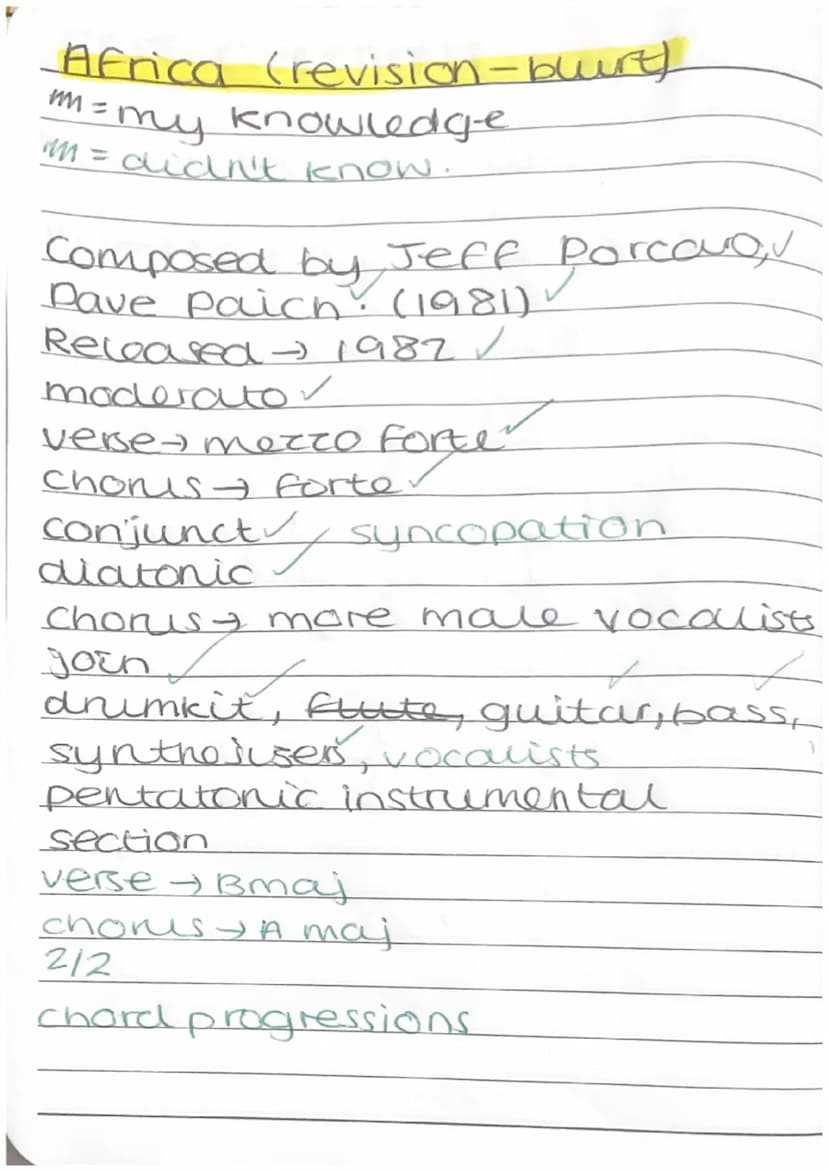 Africa (revision-blurt)
= my knowledge
= didn't know.
Composed by Jeff Porcaro,✓
Dave Paich✓. (1981)✓
Released → 1982 ✓
moderato ✓
verse → mezzo forte ✓
chorus → forte ✓
conjunct ✓ syncopation
diatonic ✓
chorus → more male vocalists
join ✓
drumkit, flute, guitar, bass,
synthesisers, vocalists
pentatonic instrumental
section
verse → Bmaj
chorus → A maj
2/2
chord progressions